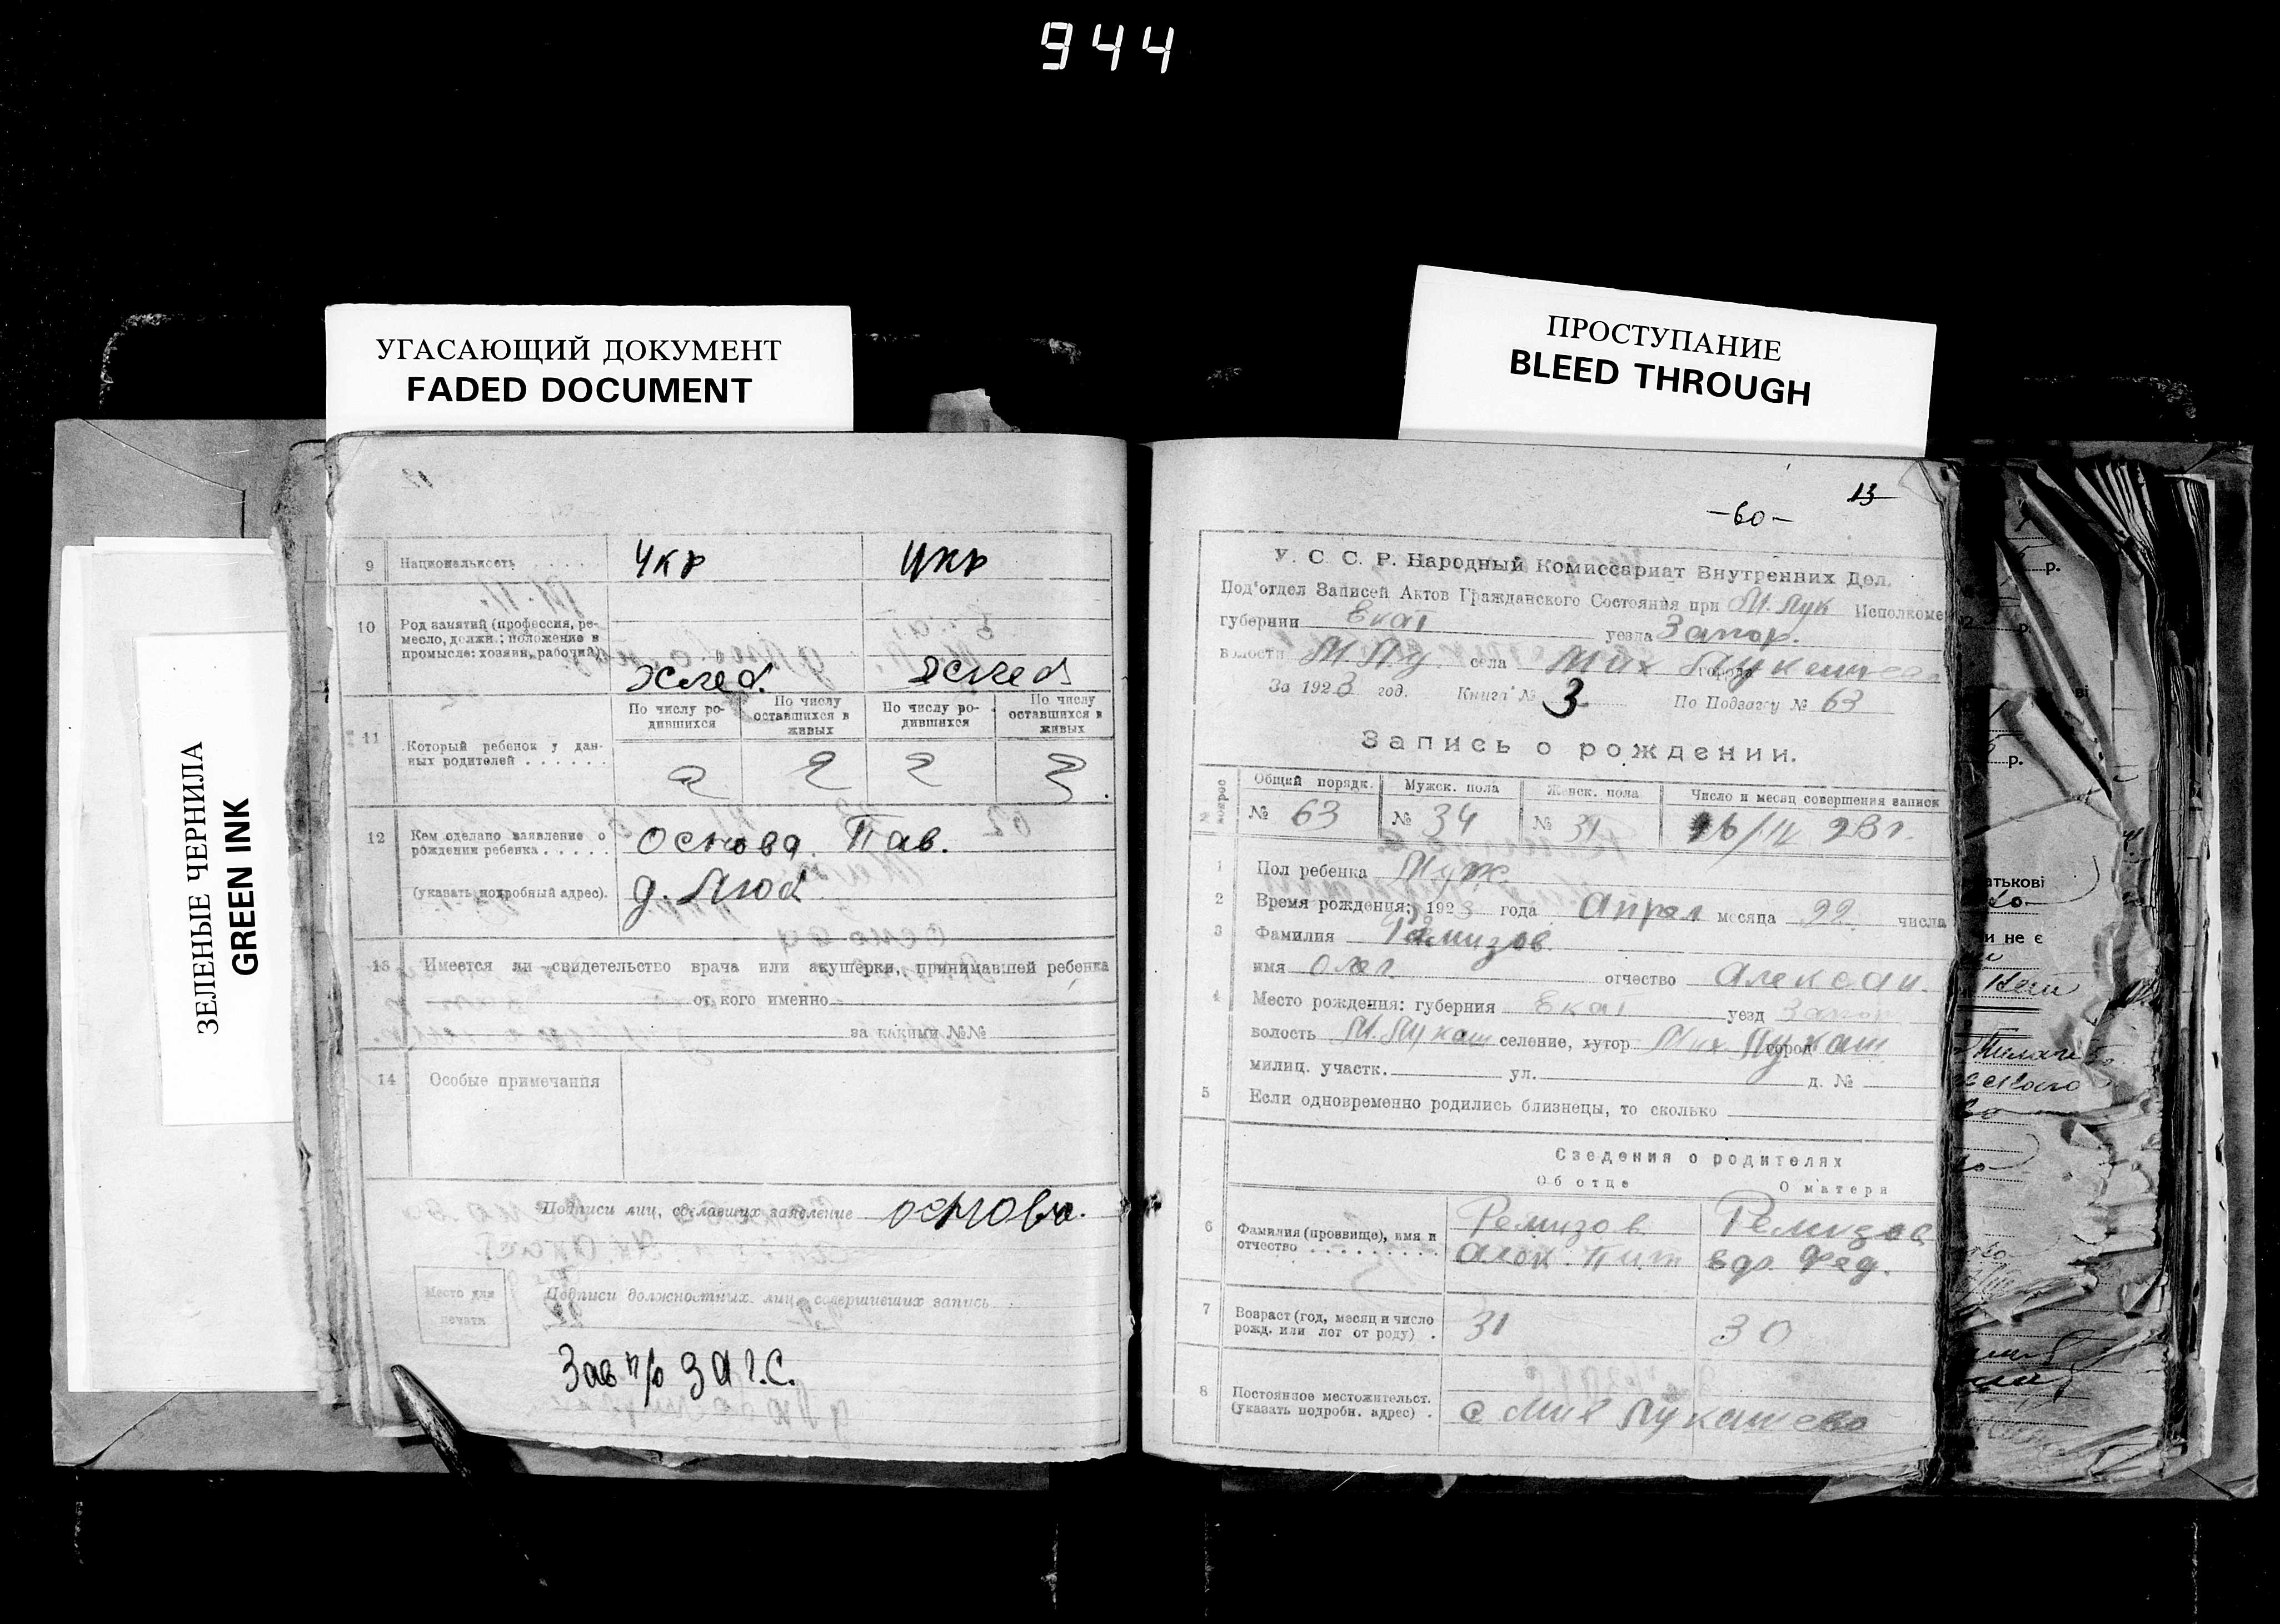 944
УГАСАЮЩИЙ ДОКУМЕНТ
FADED DOCUMENT
ПРОСТУПАНИЕ
BLEED THROUGH
ЗЕЛЕНЫЕ ЧЕРНИЛА
GREEN INK
9 Национальность Укр Укр
10 Род занятий (профессия, ре-
месло, должн.; положение в
промысле: хозяин, рабочий)
хлеб. хлеб
По числу ро-
дившихся
По числу
оставшихся в
живых
По числу ро-
дившихся
По числу
оставшихся в
живых
11 Который ребенок у дан-
ных родителей . . . . . .
2 2 2 3
12 Кем сделано заявление о
рождении ребенка . . . . .
Основа. Пав.
(указать подробный адрес).
д. Люб.
13 Имеется ли свидетельство врача или акушерки, принимавшей ребенка
от кого именно
за какими №№
14 Особые примечания
Подписи лиц, сделавших заявление Основа.
Место для
печати
Подписи должностных лиц, совершивших запись
Зав п/о ЗАГС.
13
-60-
У. С. С. Р. Народный Комиссариат Внутренних Дел.
Под'отдел Записей Актов Гражданского Состояния при М. Лук Исполкоме
губернии Екат уезда Запор.
волости М Лу. села Мих Лукашево города
За 1923 год. Книга № 3 По Подзагу № 63
Запись о рождении.
Общий порядк. Мужск. пола Женск. пола Число и месяц совершения записи
№ 63 № 34 № 31 26/IV 23 г.
1 Пол ребенка Муж
2 Время рождения: 1923 года Апрел месяца 22 числа
3 Фамилия Ремизов
имя Олег отчество Алексан.
4 Место рождения: губерния Екат уезд Запор
волость М. Лукаш селение, хутор Мих Лукаш город
милиц. участк. ул. д. №
5 Если одновременно родились близнецы, то сколько
Сведения о родителях
Об отце О матери
6 Фамилия (прозвище), имя и
отчество . . . . . . . . .
Ремизов
Алек. Пит
Ремизов
Евдо. Фед.
7 Возраст (год, месяц и число
рожд. или лет от роду) .
31 30
8 Постоянное местожительст.
(указать подробн. адрес) .
с Мих Лукашево